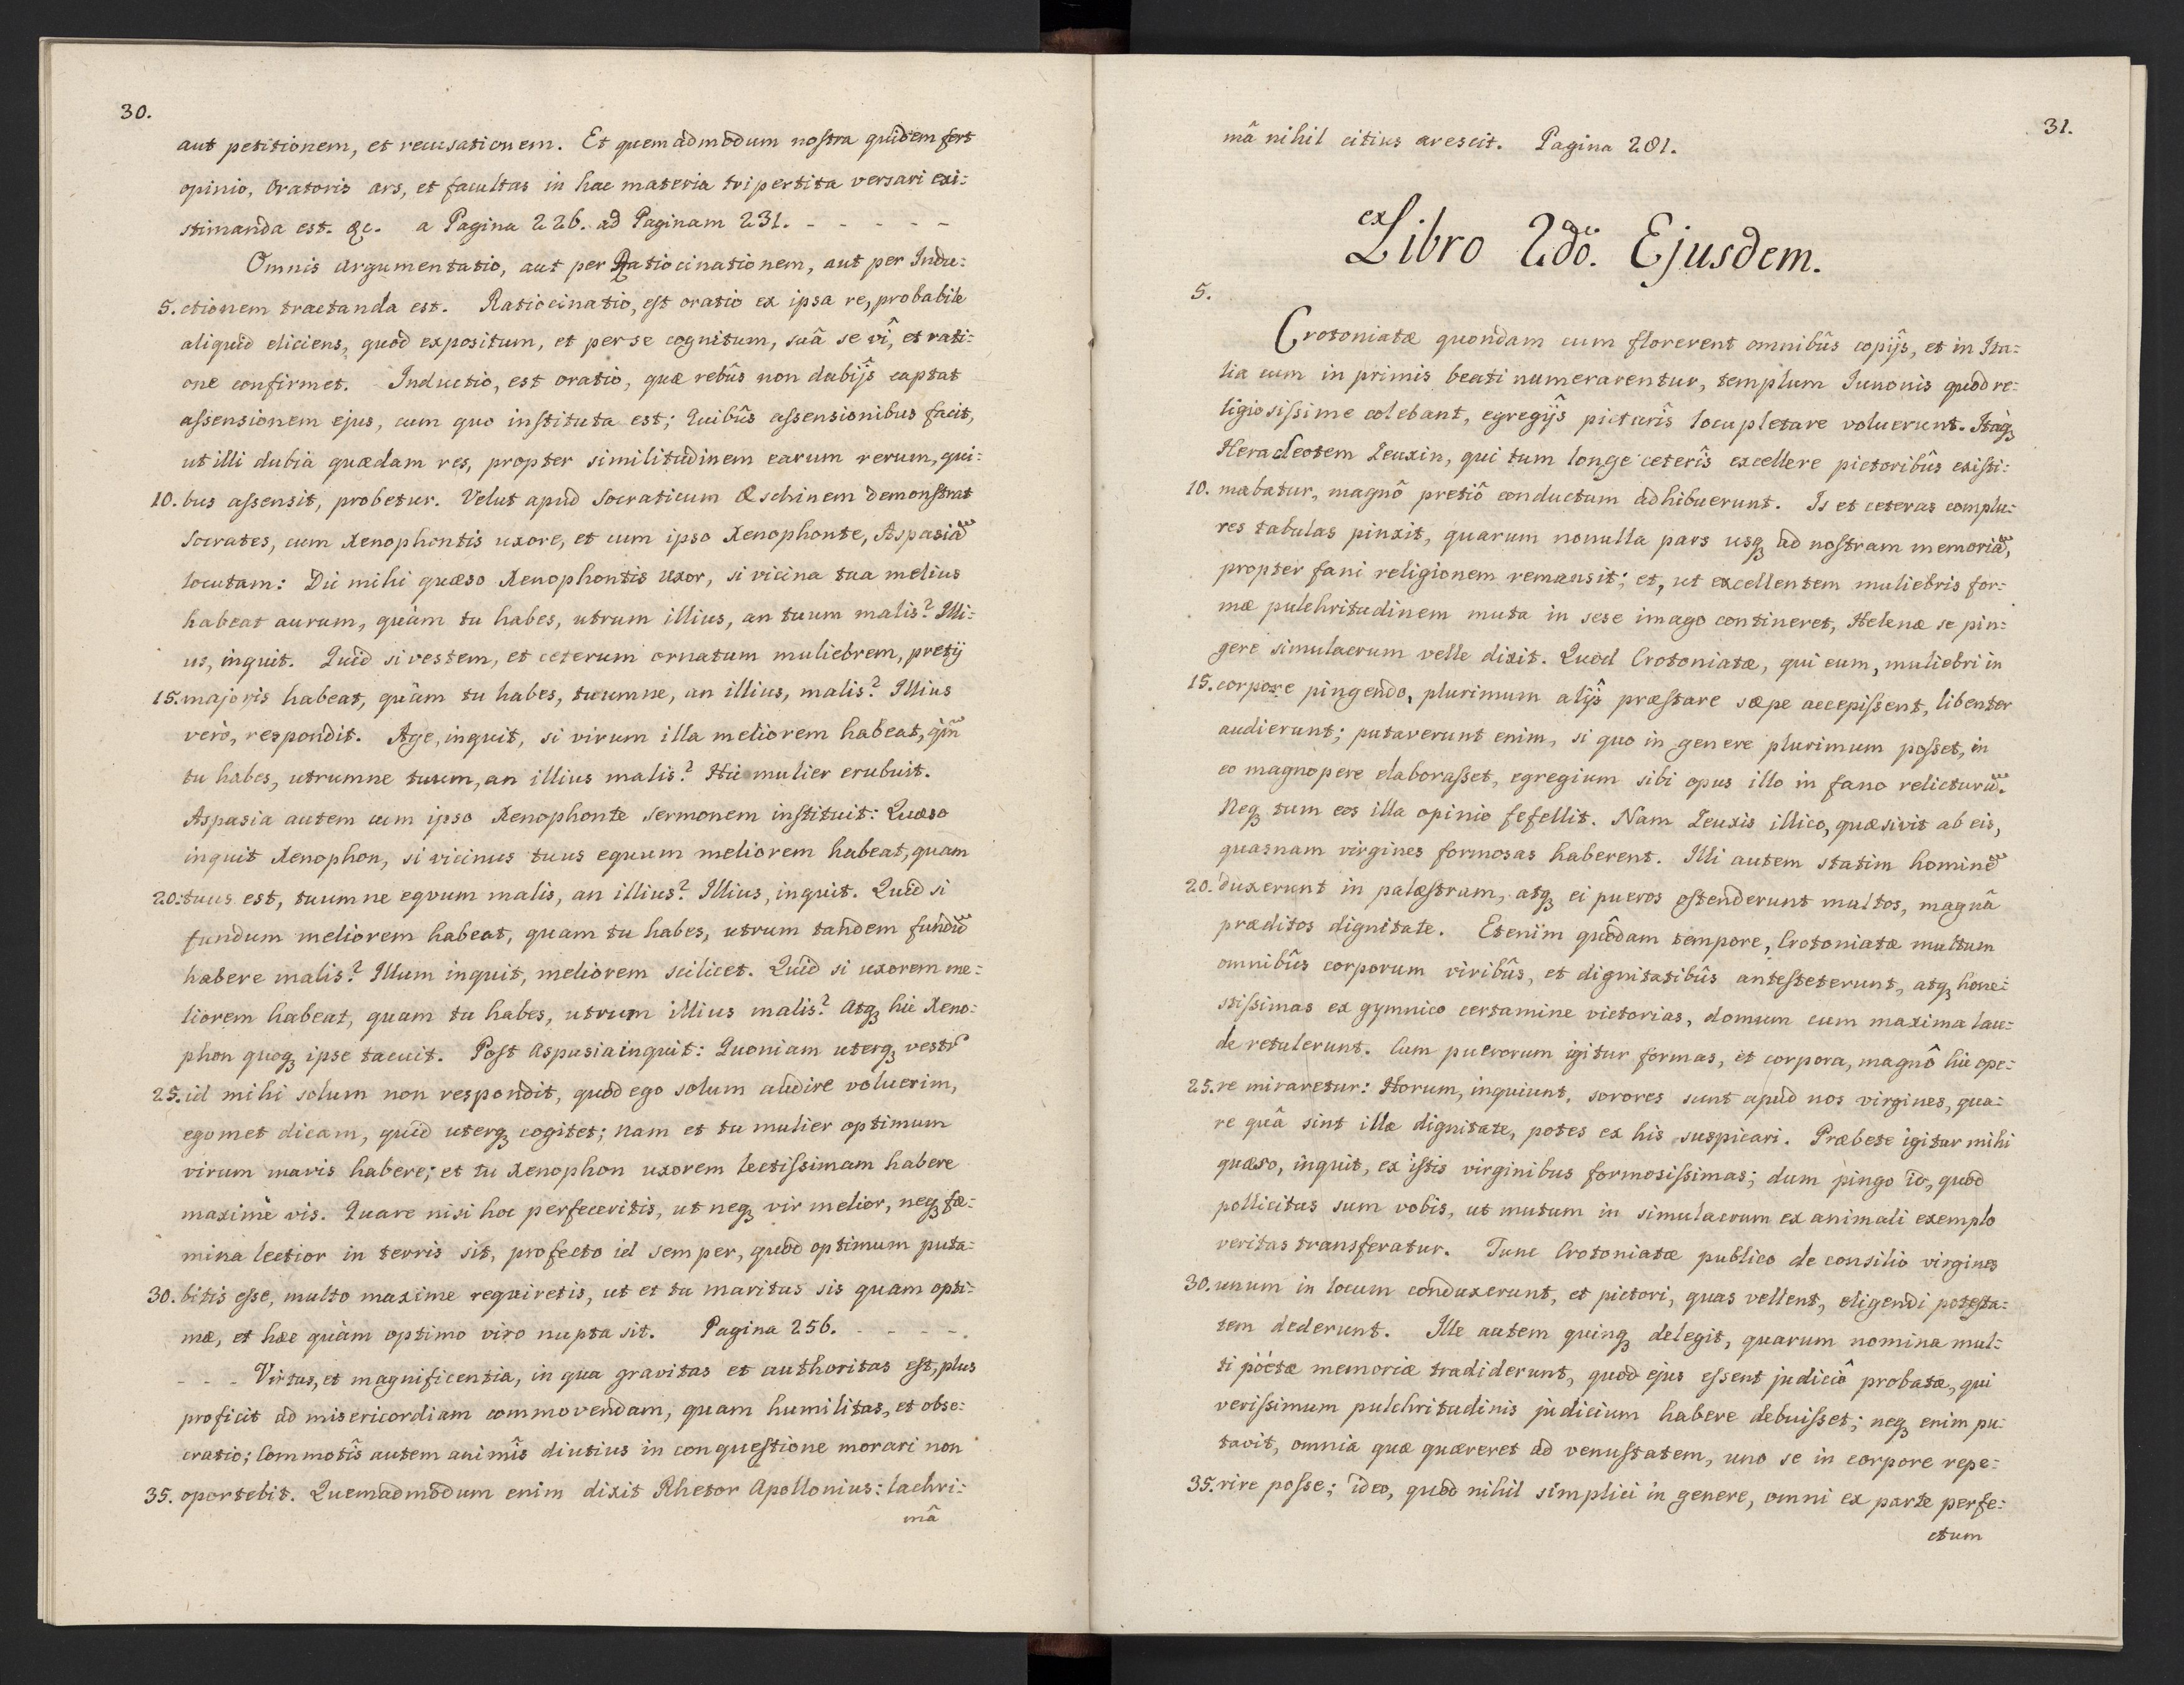 30.
aut petitionem, et recusationem. Et quemadmodum nostra quidem fert
opinio, Oratoris ars, et facultas in hac materia tripertita versari exi:
stimanda est. &c. a Pagina 226. ad Paginam 231. - - - - -
Omnis argumentatio, aut per Ratiocinationem, aut per Indu:
5. ctionem tractanda est. Ratiocinatio, est oratio ex ipsa re, probabile
aliquid eliciens, quod expositum, et per se cognitum, suâ se vî, et rati:
one confirmet. Inductio, est oratio, quæ rebûs non dubijs captat
assensionem ejus, cum quo instituta est; Quibûs assensionibus facit,
ut illi dubia quædam res, propter similitudinem earum rerum, qui:
10. bus assensit, probetur. Velut apud Socraticum Æschinem demonstrat
Socrates, cum Xenophontis uxore, et cum ipso Xenophonte, Aspasiã
locutam: Dic mihi quæso Xenophontis uxor, si vicina tua melius
habeat aurum, quàm tu habes, utrum illius, an tuum malis? Illi:
us, inquit. Quid si vestem, et ceterum ornatum muliebrem, pretij
15. majoris habeat, quàm tu habes, tuumne, an illius, malis? Illius
verò, respondit. Age, inquit, si virum illa meliorem habeat, qm̃
tu habes, utrumne tuum, an illius malis? Hic mulier erubuit.
Aspasia autem cum ipso Xenophonte sermonem instituit: Quæso
inquit Xenophon, si vicinus tuus equum meliorem habeat, quam
20. tuus est, tuumne eqvum malis, an illius? Illius, inquit. Quid si
fundum meliorem habeat, quam tu habes, utrum tandem fundũ
habere malis? Illum inquit, meliorem scilicet. Quid si uxorem me:
liorem habeat, quam tu habes, utrum illius malis? Atq; hic Xeno:
phon quoq; ipse tacuit. Post Aspasia inquit: Quoniam uterq; vestr̃
25. id mihi solum non respondit, quod ego solum audire voluerim,
egomet dicam, quid uterq; cogitet; nam et tu mulier optimum
virum mavis habere; et tu Xenophon uxorem lectissimam habere
maximè vis. Quare nisi hoc perfeceritis, ut neq; vir melior, neq; fœ:
mina lectior in terris sit, profecto id semper, quod optimum puta:
30. bitis esse, multo maxime requiretis, ut et tu maritus sis quam opti:
mæ, et hæc quàm optimo viro nupta sit. Pagina 256. - - - -.
- - - Virtus, et magnificentia, in qua gravitas et authoritas est, plus
proficit ad misericordiam commovendam, quam humilitas, et obse:
cratio; Commotîs autem animîs diutius in conquestione morari non
35. oportebit. Quemadmodum enim dixit Rhetor Apollonius: lachri:
mâ
31.
mâ nihil citius arescit. Pagina 281.
ex Libro 2do. Ejusdem.
5.
Crotoniatæ quondam cum florerent omnibûs copijs, et in Ita:
lia cum in primis beati numerarentur, templum Iunonis quod re:
ligiosissime colebant, egregijs picturîs locupletare voluerunt. Itaq;
Heracleotem Zeuxin, qui tum longe ceterîs excellere pictoribûs existi:
10. mabatur, magnô pretiô conductum adhibuerunt. Is et ceteras complu:
res tabulas pinxit, quarum nonulla pars usq; ad nostram memoriã,
propter fani religionem remansit; et, ut excellentem muliebris for:
mæ pulchritudinem muta in sese imago contineret, Helenæ se pin:
gere simulacrum velle dixit. Quod Crotoniatæ, qui eum, muliebri in
15. corpore pingendo, plurimum alijs præstare sæpe accepissent, libenter
audierunt; putaverunt enim, si quo in genere plurimum posset, in
eo magnopere elaborasset, egregium sibi opus illo in fano relicturũ.
Neq; tum eos illa opinio fefellit. Nam Zeuxis illico, quæsivit ab eis,
quasnam virgines formosas haberent. Illi autem statim hominẽ
20. duxerunt in palæstram, atq; ei pueros ostenderunt multos, magnâ
præditos dignitate. Etenim quôdam tempore, Crotoniatæ multum
omnibûs corporum viribûs, et dignitatibûs antesteterunt, atq; hone:
stissimas ex gymnico certamine victorias, domum cum maxima lau:
de retulerunt. Cum puerorum igitur formas, et corpora, magnô hic ope:
25. re miraretur: Horum, inquiunt, sorores sunt apud nos virgines, qua:
re quâ sint illæ dignitate, potes ex his suspicari. Præbete igitur mihi
quæso, inquit, ex istis virginibus formosissimas; dum pingo id, quod
pollicitus sum vobis, ut mutum in simulacrum ex animali exemplo
veritas transferatur. Tunc Crotoniatæ publico de consilio virgines
30. unum in locum conduxerunt, et pictori, quas vellent, eligendi potesta:
tem dederunt. Ille autem quinq; delegit, quarum nomina mul:
ti poëtæ memoriæ tradiderunt, quod ejus essent judiciô probatæ, qui
verissimum pulchritudinis judicium habere debuisset; neq; enim pu:
tavit, omnia quæ quæreret ad venustatem, uno se in corpore repe:
35. rire posse; ideo, quod nihil simplici in genere, omni ex parte perfe:
ctum